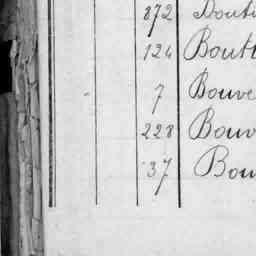 872 Bouti
124 Bout
7 Bouve
228 Bouv
37 Bou